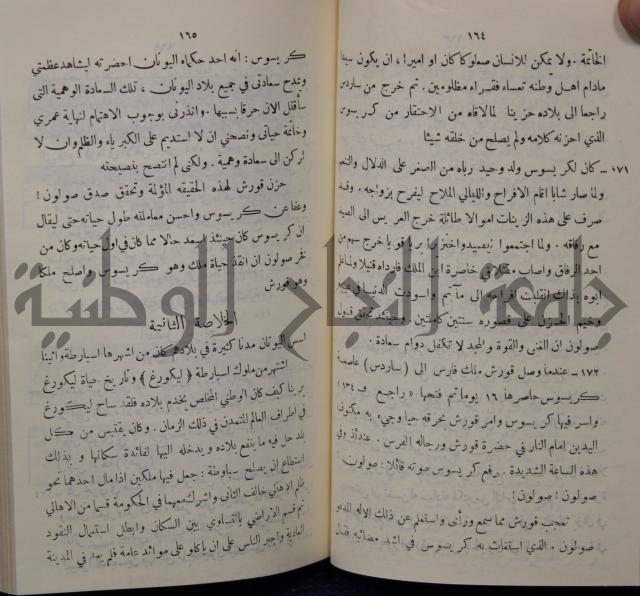 ١٦٤
الخاتمة . ولا يمكن للانسان صعلوكا كان او اميرا ، ان يكون سعيدا
مادام اهل وطنه تعساء فقراء مظلومين . ثم خرج من سارديس
راجعا الى بلاده حزينا لمالاقاه من الاحتقار من كريسوس
الذي احزنه كلامه ولم يصلح من خلقه شيئا
١٧١ – كان لكريسوس ولد وحيد رباه من الصغر على الدلال والتنعم
ولما صار شابا اقام الافراح والليالي الملاح ليفرح بزواجه . وقد
صرف على هذه الزينات اموالا طائلة خرج العريس الى الصيد
مع رفاقه . ولما اجتمعوا خرج سهم من
احد الرفاق واصاب مقتلا في خاصرة ابن الملك فارداه قتيلا ولما علم
ابوه بذلك انقلبت افراحه الى مآتم واسودت الدنيا في
وخيم الحزن على قصوره سنتين كاملتين . وحينئذ تحقق قول
صولون ان الغنى والقوة والمجد لا تكفل دوام سعادة .
١٧٢ – عندما وصل قورش ملك فارس الى (ساردس) عاصمة
كريسوس حاصرها ١٦ يوما ثم فتحها « راجع ف ١٣٤ »
واسر فيها كريسوس وامر قورش بحرقه حيا وجيء به مكتوف
اليدين امام النار في حضرة قورش ورجاله الفرس . عندئذ وفي
هذه الساعة الشديدة . رفع كريسوس صوته قائلا : صولون !
صولون ! صولون !
تعجب قورش مما سمع ورأى واستعلم عن ذلك الاله المدعو
صولون . الذي استغاث به كريسوس في اشد مصائبه فقال
١٦٥
كريسوس : انه احد حكماء اليونان احضرته ليشاهد عظمتي
ويمدح سعادتي في جميع بلاد اليونان ، تلك السعادة الوهمية التي
سأقتل الان حرقا بسببها . وانذرني بوجوب الاهتمام لنهاية عمري
وخاتمة حياتي ونصحني ان لا استديم على الكبرياء والظلم وان لا
اركن الى سعادة وهمية . ولكني لم انتصح بنصيحته
حزن قورش لهذه الحقيقه المؤلمة وتحقق صدق صولون !
وعفا عن كريسوس واحسن معاملته طول حياته حتى ليقال
ان كريسوس كان حينئذ اسعد حالا مما كان في اول حياته وكان من
فخر صولون ان انقذ حياة ملك وهو كريسوس واصلح ملكا
وهو قورش
الخلاصة الثانية
اسس اليونان مدنا كثيرة في بلادهم كان من اشهرها اسبارطة واثينا
اشتهر من ملوك اسبارطة (ليكورغ) وتاريخ حياة ليكورغ
يرينا كيف كان الوطني المخلص يخدم بلاده فلقد ساح ليكورغ
في اطراف العالم المتمدن في ذلك الزمان . وكان يقتبس من كل
بلد حل فيه ما ينفع بلاده ويدخله اليها لفائدة سكانها و بذلك
استطاع ان يصلح سباوطة : جعل فيها ملكين اذا مال احدهما نحو
ظلم الاهالي خالف الثاني واشرك معهما في الحكومة قسما من الاهالي
ثم قسم الاراضي بالتساوي بين السكان وابطل استعمال النقود
العادية واجبر الناس على ان ياكلوا على موائد عامة فلم يعد في المدينة
جامعة النجاح الوطنية